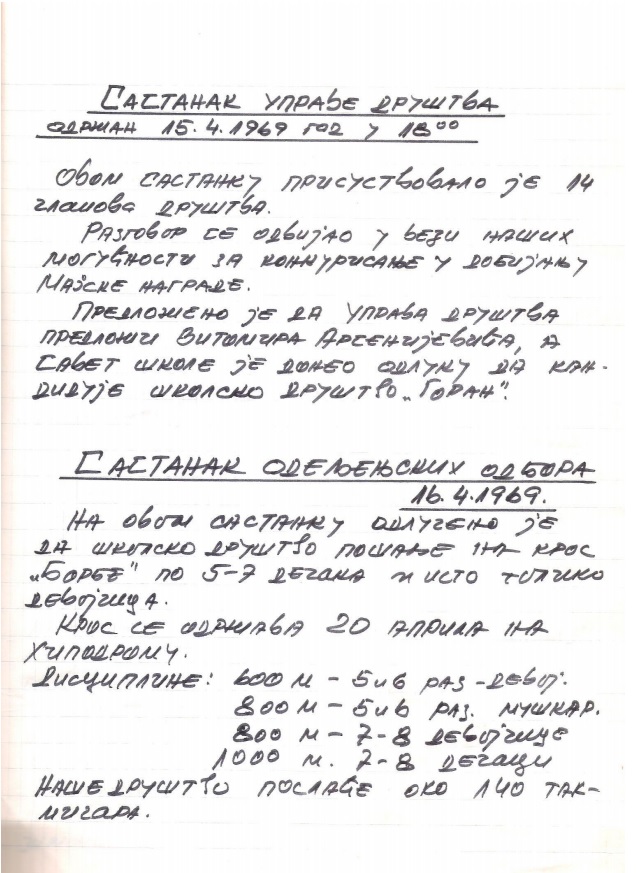 САСТАНАК УПРАВЕ ДРУШТВА
ОДРЖАН 15.4.1969 ГОД У 18⁰⁰
ОВОМ САСТАНКУ ПРИСУСТВОВАЛО ЈЕ 14
ЧЛАНОВА ДРУШТВА.
РАЗГОВОР СЕ ОДВИЈАО У ВЕЗИ НАШИХ
МОГУЋНОСТИ ЗА КОНКУРИСАЊЕ У ДОБИЈАЊУ
МАЈСКЕ НАГРАДЕ.
ПРЕДЛОЖЕНО ЈЕ ДА УПРАВА ДРУШТВА
ПРЕДЛОЖИ ВИТОМИРА АРСЕНИЈЕВИЋА, А
САВЕТ ШКОЛЕ ЈЕ ДОНЕО ОДЛУКУ ДА КАН-
ДИДУЈЕ ШКОЛСКО ДРУШТВО „ГОРАН".
САСТАНАК ОДЕЉЕЊСКИХ ОДБОРА
16.4.1969.
НА ОВОМ САСТАНКУ ОДЛУЧЕНО ЈЕ
ДА ШКОЛСКО ДРУШТВО ПОШАЉЕ НА КРОС
„БОРБЕ" ПО 5-7 ДЕЧАКА И ИСТО ТОЛИКО
ДЕВОЈЧИЦА.
КРОС СЕ ОДРЖАВА 20 АПРИЛА НА
ХИПОДРОМУ.
ДИСЦИПЛИНЕ: 600 М - 5 И 6 РАЗ - ДЕВОЈ.
800 М - 5 И 6 РАЗ. МУШКАР.
800 М - 7-8 ДЕВОЈЧИЦЕ
1000 М. 7-8 ДЕЧАЦИ
НАШЕ ДРУШТВО ПОСЛАЋЕ ОКО 140 ТАК-
МИЧАРА.